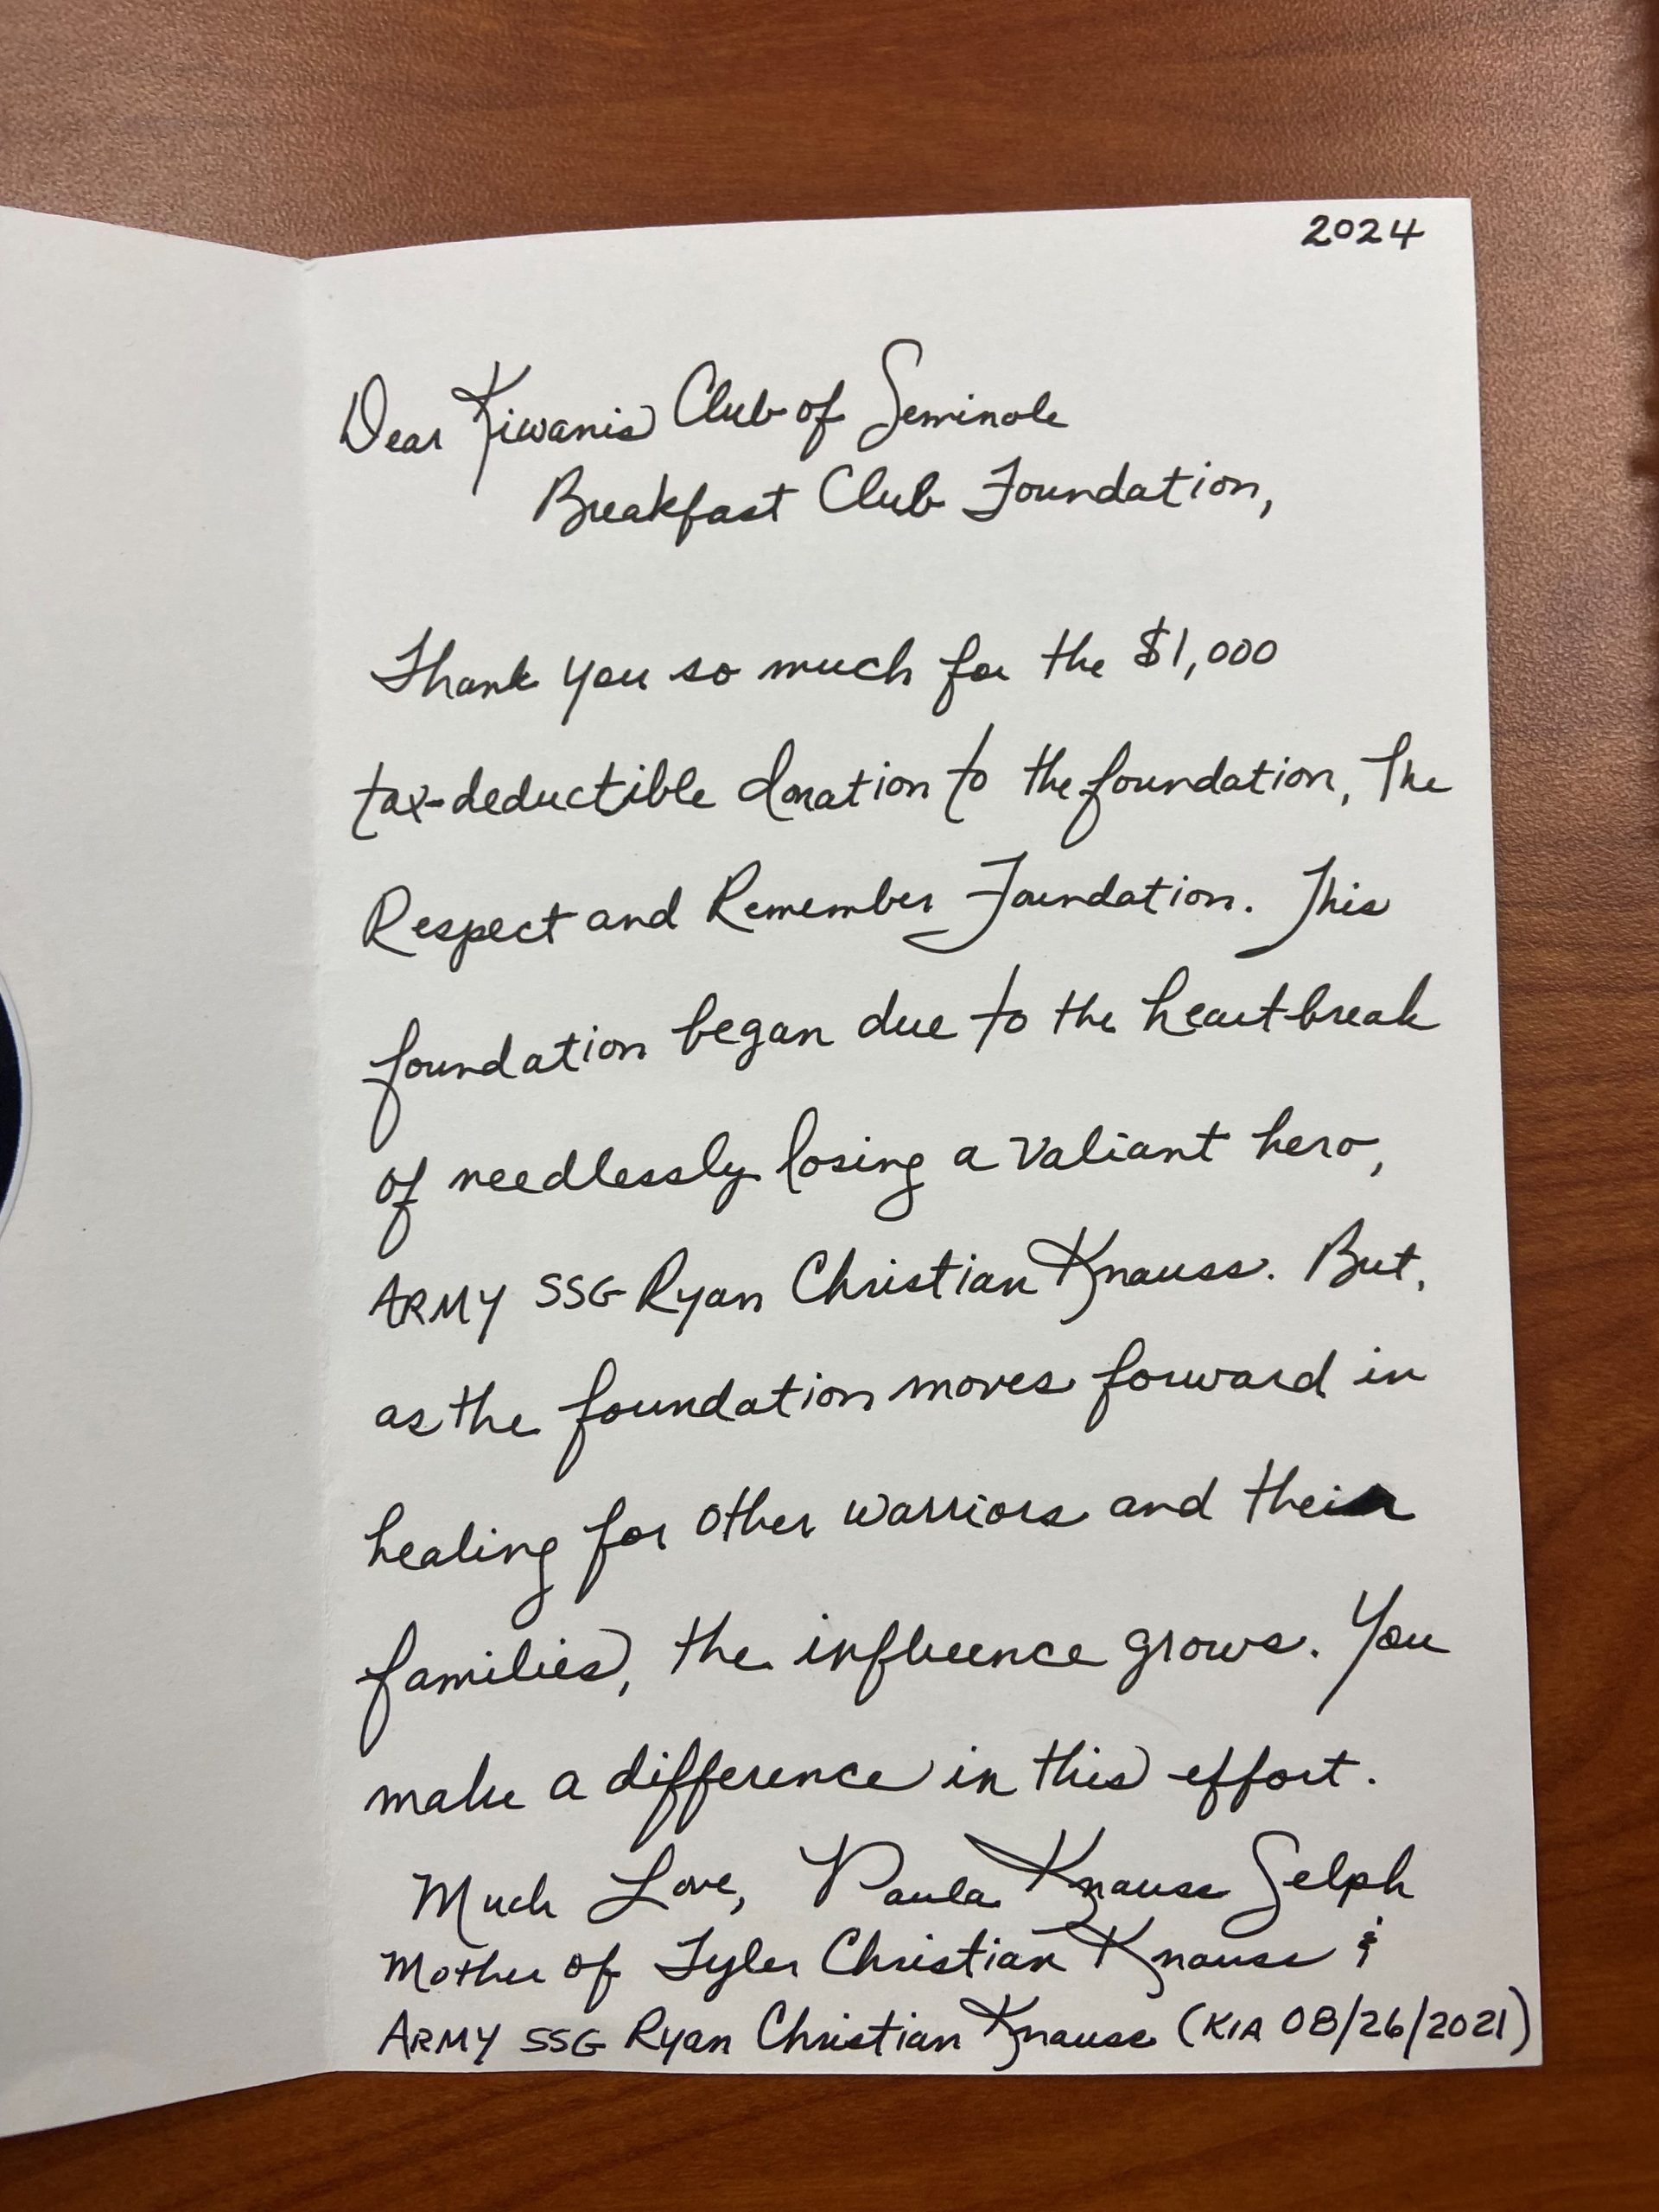 2024
Dear Kiwanis Club of Seminole
Breakfast Club Foundation,
Thank you so much for the $1,000
tax-deductible donation to the foundation, The
Respect and Remember Foundation. This
foundation began due to the heartbreak
of needlessly losing a valiant hero,
ARMY SSG Ryan Christian Knauss. But,
as the foundation moves forward in
healing for other warriors and their
families, the influence grows. You
make a difference in this effort.
Much Love, Paula Knauss Selph
Mother of Tyler Christian Knauss &
ARMY SSG Ryan Christian Knauss (KIA 08/26/2021)